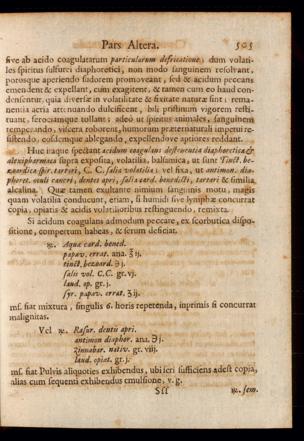 Pars Altera. 505
sive ab acido coagulatarum particularum defricatione; dum volati-
les spiritus sulfurei diaphoretici, non modo sanguinem resolvant,
porosque aperiendo sudorem promoveant, sed & acidum peccans
emendent & expellant, cum exagitent, & tamen cum eo haud con-
densentur, quia diversæ in volatilitate & fixitate naturæ sint; rema-
nentia acria attenuando dulcificent, bili pristinum vigorem resti-
tuant, ferociamque tollant; adeò ut spiritus animales, sanguinem
temperando, viscera roborent, humorum præternaturali impetui re-
sistendo, eosdemque ablegando, expellendove aptiores reddant.
Huc itaque spectant acidum coagulans destruentia diaphoretica &
alexipharmaca supra exposita, volatilia, balsamica, ut sunt Tinct. be-
zoardica spir. tartari, C. C. salia volatilia; vel fixa, ut antimon. dia-
phoret. oculi cancri, dentes apri, salia card. benedicti, tartari & similia
alcalina. Quæ tamen exultante nimium sanguinis motu, magis
quam volatilia conducunt, etiam, si humidi sive lymphæ concurrat
copia, opiatis & acidis volatilioribus restinguendo, remixta.
Si acidum coagulans admodum peccare, ex scorbutica dispo-
sitione, compertum habeas, & serum deficiat.
℞. Aquæ card. bened.
papav. errat. ana. ℥ ij.
tinct. bezoard. ℈ j.
salis vol. C.C. gr. vj.
laud. op. gr. j.
syr. papav. errat. ℥ ij.
ms. fiat mixtura, singulis 6. horis repetenda, inprimis si concurrat
malignitas.
Vel ℞. Rasur. dentis apri.
antimon diaphor. ana. ℈ j.
Zinnabar. nativ. gr. viij.
laud. opiat. gr. j.
ms. fiat Pulvis aliquoties exhibendus, ubi seri sufficiens adest copia,
alias cum sequenti exhibendus emulsione, v. g.
Sss ℞. sem.